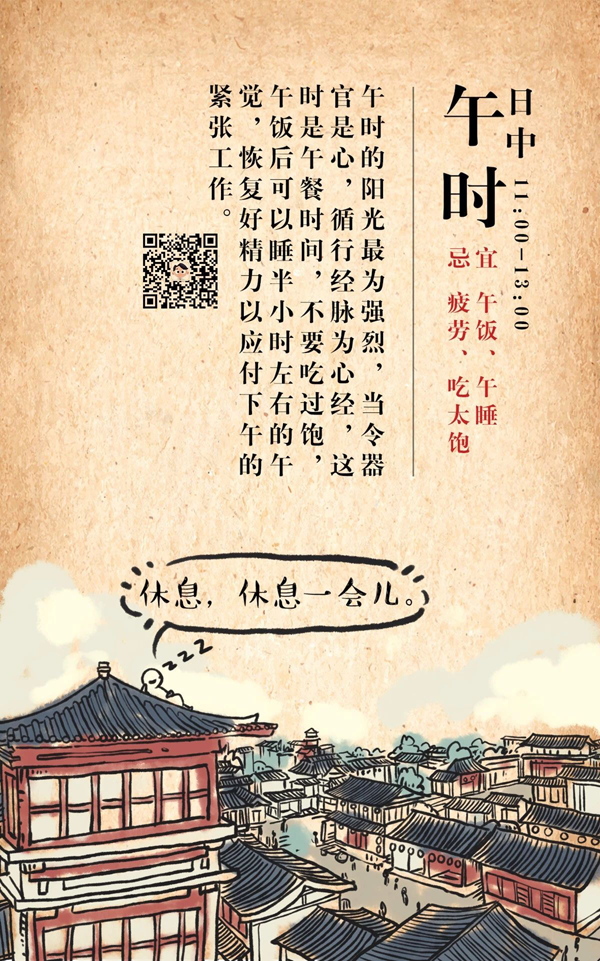 日中 11:00-13:00
午时
宜 午饭、午睡
忌 疲劳、吃太饱
午时的阳光最为强烈，当令器
官是心，循行经脉为心经，这
时是午餐时间，不要吃过饱，
午饭后可以睡半小时左右的午
觉，恢复好精力以应付下午的
紧张工作。
休息，休息一会儿。
zzz